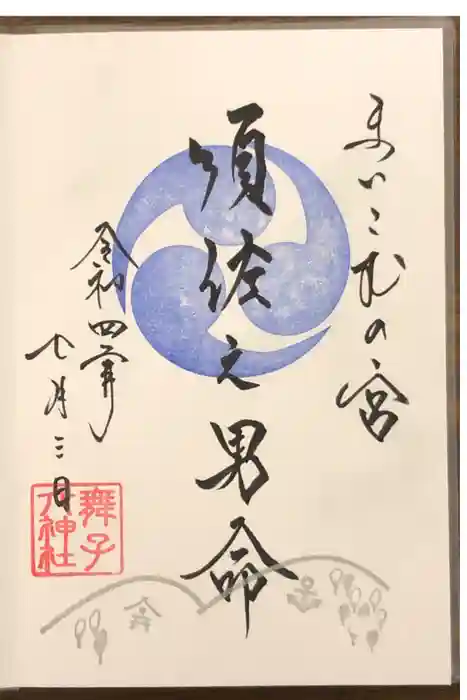 まいこむの宮
須佐之男命
令和四年
七月三日
舞子
六神社